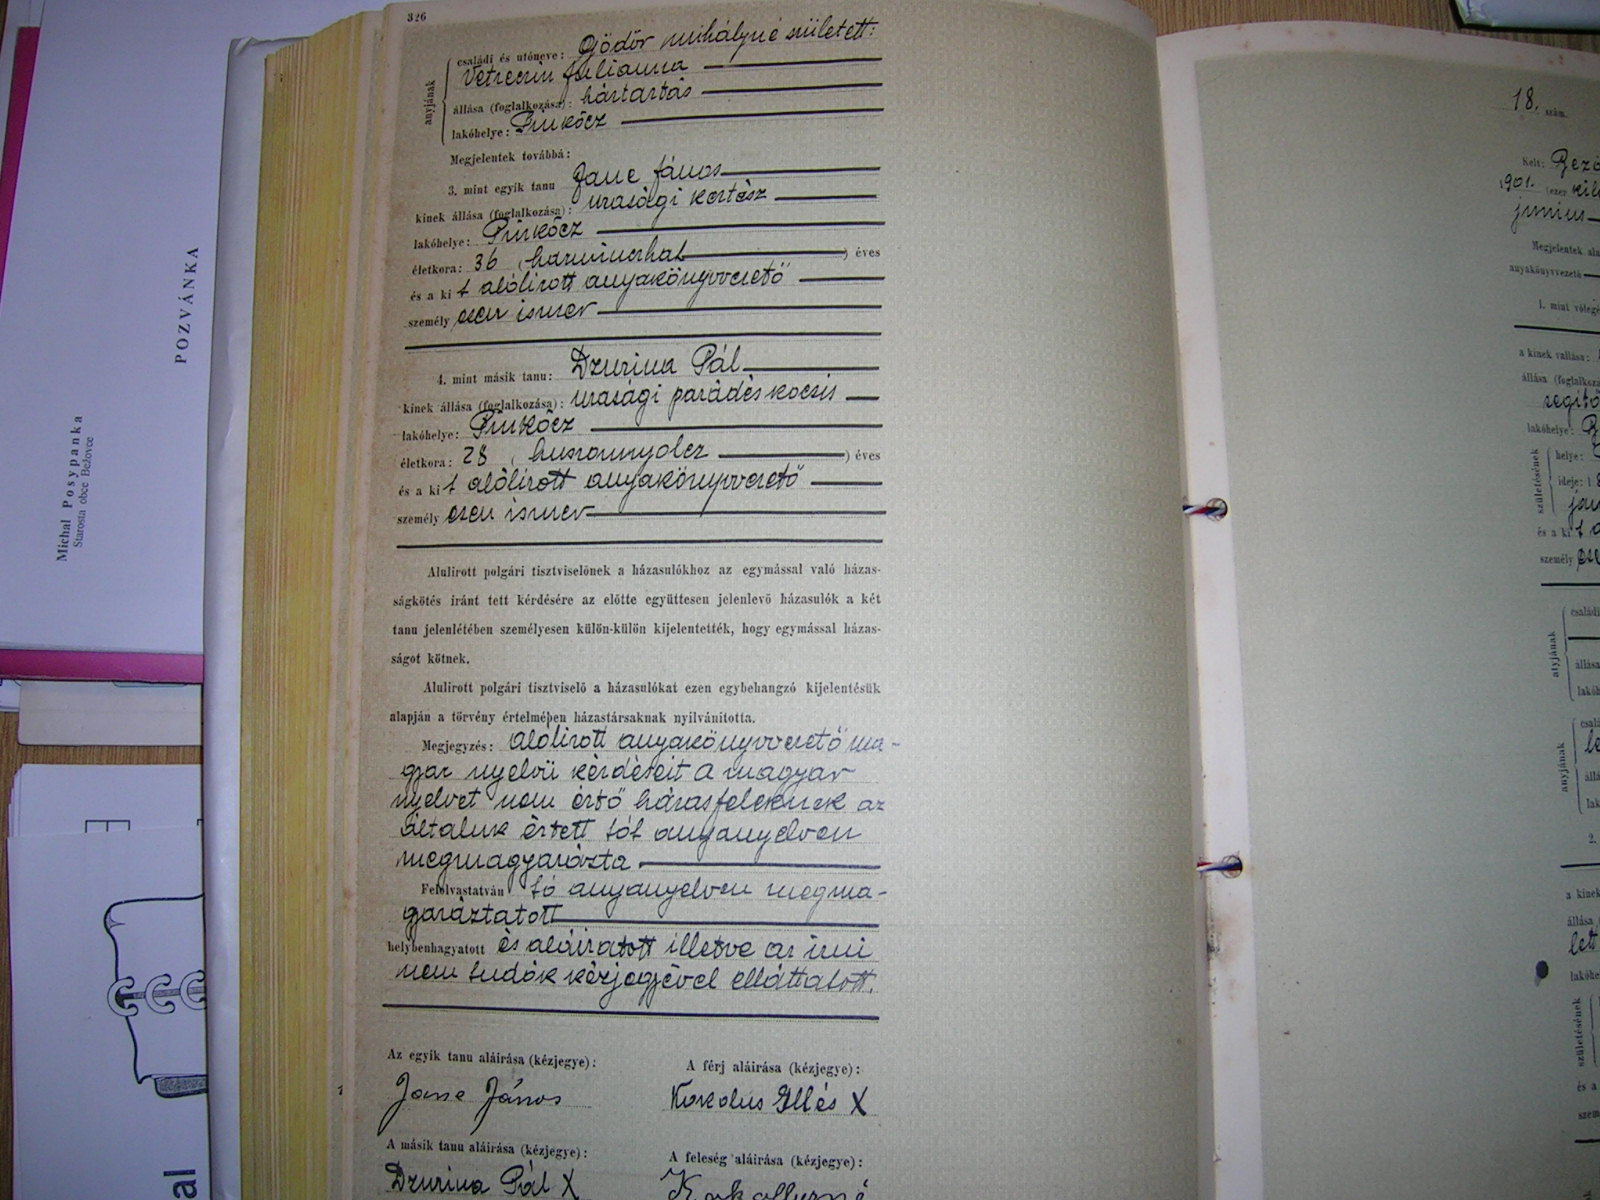 326
anyjának
családi és utóneve: Gödör Mihályné született:
Julianna
állása (foglalkozása): háztartás
lakóhelye: Pinkócz
Megjelentek továbbá:
3. mint egyik tanu Jane János
kinek állása (foglalkozása): urasági kertész
lakóhelye: Pinkócz
életkora: 36 (harminchat) éves
és a ki t alólirott anyakönyvvezető
személy esen ismer
4. mint másik tanu: Dzurina Pál
kinek állása (foglalkozása): urasági parádés kocsis
lakóhelye: Pinkócz
életkora: 28 (huszonnyolcz) éves
és a ki t alólirott anyakönyvvezető
személy esen ismer
Alulirott polgári tisztviselőnek a házasulókhoz az egymással való házas-
ságkötés iránt tett kérdésére az előtte együttesen jelenlevő házasulók a két
tanu jelenlétében személyesen külön-külön kijelentették, hogy egymással házas-
ságot kötnek.
Alulirott polgári tisztviselő a házasulókat ezen egybehangzó kijelentésük
alapján a törvény értelmében házastársaknak nyilvánitotta.
Megjegyzés: alólirott anyakönyvvezető ma-
gyar nyelvü kérdéseit a magyar
nyelvet nem értő házasfeleknek az
általuk értett tót anyanyelven
megmagyarázta
Felolvastatván tó anyanyelven megma-
garáztatott
helybenhagyatott és aláiratott illetve az irni
nem tudók kézjegyével elláttatott.
Az egyik tanu aláirása (kézjegye):
Jane János
A férj aláirása (kézjegye):
Illés X
A másik tanu aláirása (kézjegye):
Dzurina Pál X
A feleség aláirása (kézjegye):
18. szám.
Kelt:
1901.
junius
Megjelentek
anyakönyvvezető
1. mint
a kinek vallása:
állása
lakóhelye:
születésének
helye:
ideje: 1
és a ki t
személy
atyjának
állása
anyjának
2.
a kinek
állása
születésének
és a
POZVÁNKA
Michal Posypanka
Starosta obce Bežovce
al